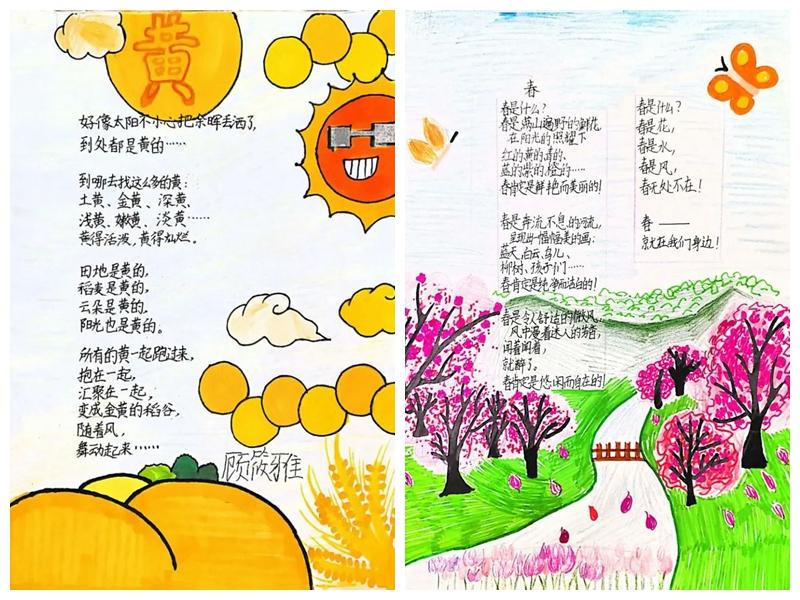 黄
好像太阳不小心把余晖丢洒了,
到处都是黄的……
到哪去找这么多的黄:
土黄、金黄、深黄、
浅黄、嫩黄、淡黄……
黄得活泼,黄得灿烂。
田地是黄的,
稻麦是黄的,
云朵是黄的,
阳光也是黄的。
所有的黄一起跑过来,
抱在一起,
汇聚在一起,
变成金黄的稻谷,
随着风,
舞动起来……
顾筱雅
春
春是什么?
春是满山遍野的鲜花,
在阳光的照耀下
红的黄的青的、
蓝的紫的橙的……
春肯定是鲜艳而美丽的!
春是奔流不息的河流,
呈现出一幅幅美的画:
蓝天、白云、鸟儿、
柳树、孩子们……
春肯定是纯净而洁白的!
春是令人舒适的微风,
风中漫着迷人的芳香,
闻着闻着,
就醉了。
春肯定是悠闲而自在的!
春是什么?
春是花,
春是水,
春是风,
春无处不在!
春——
就在我们身边!